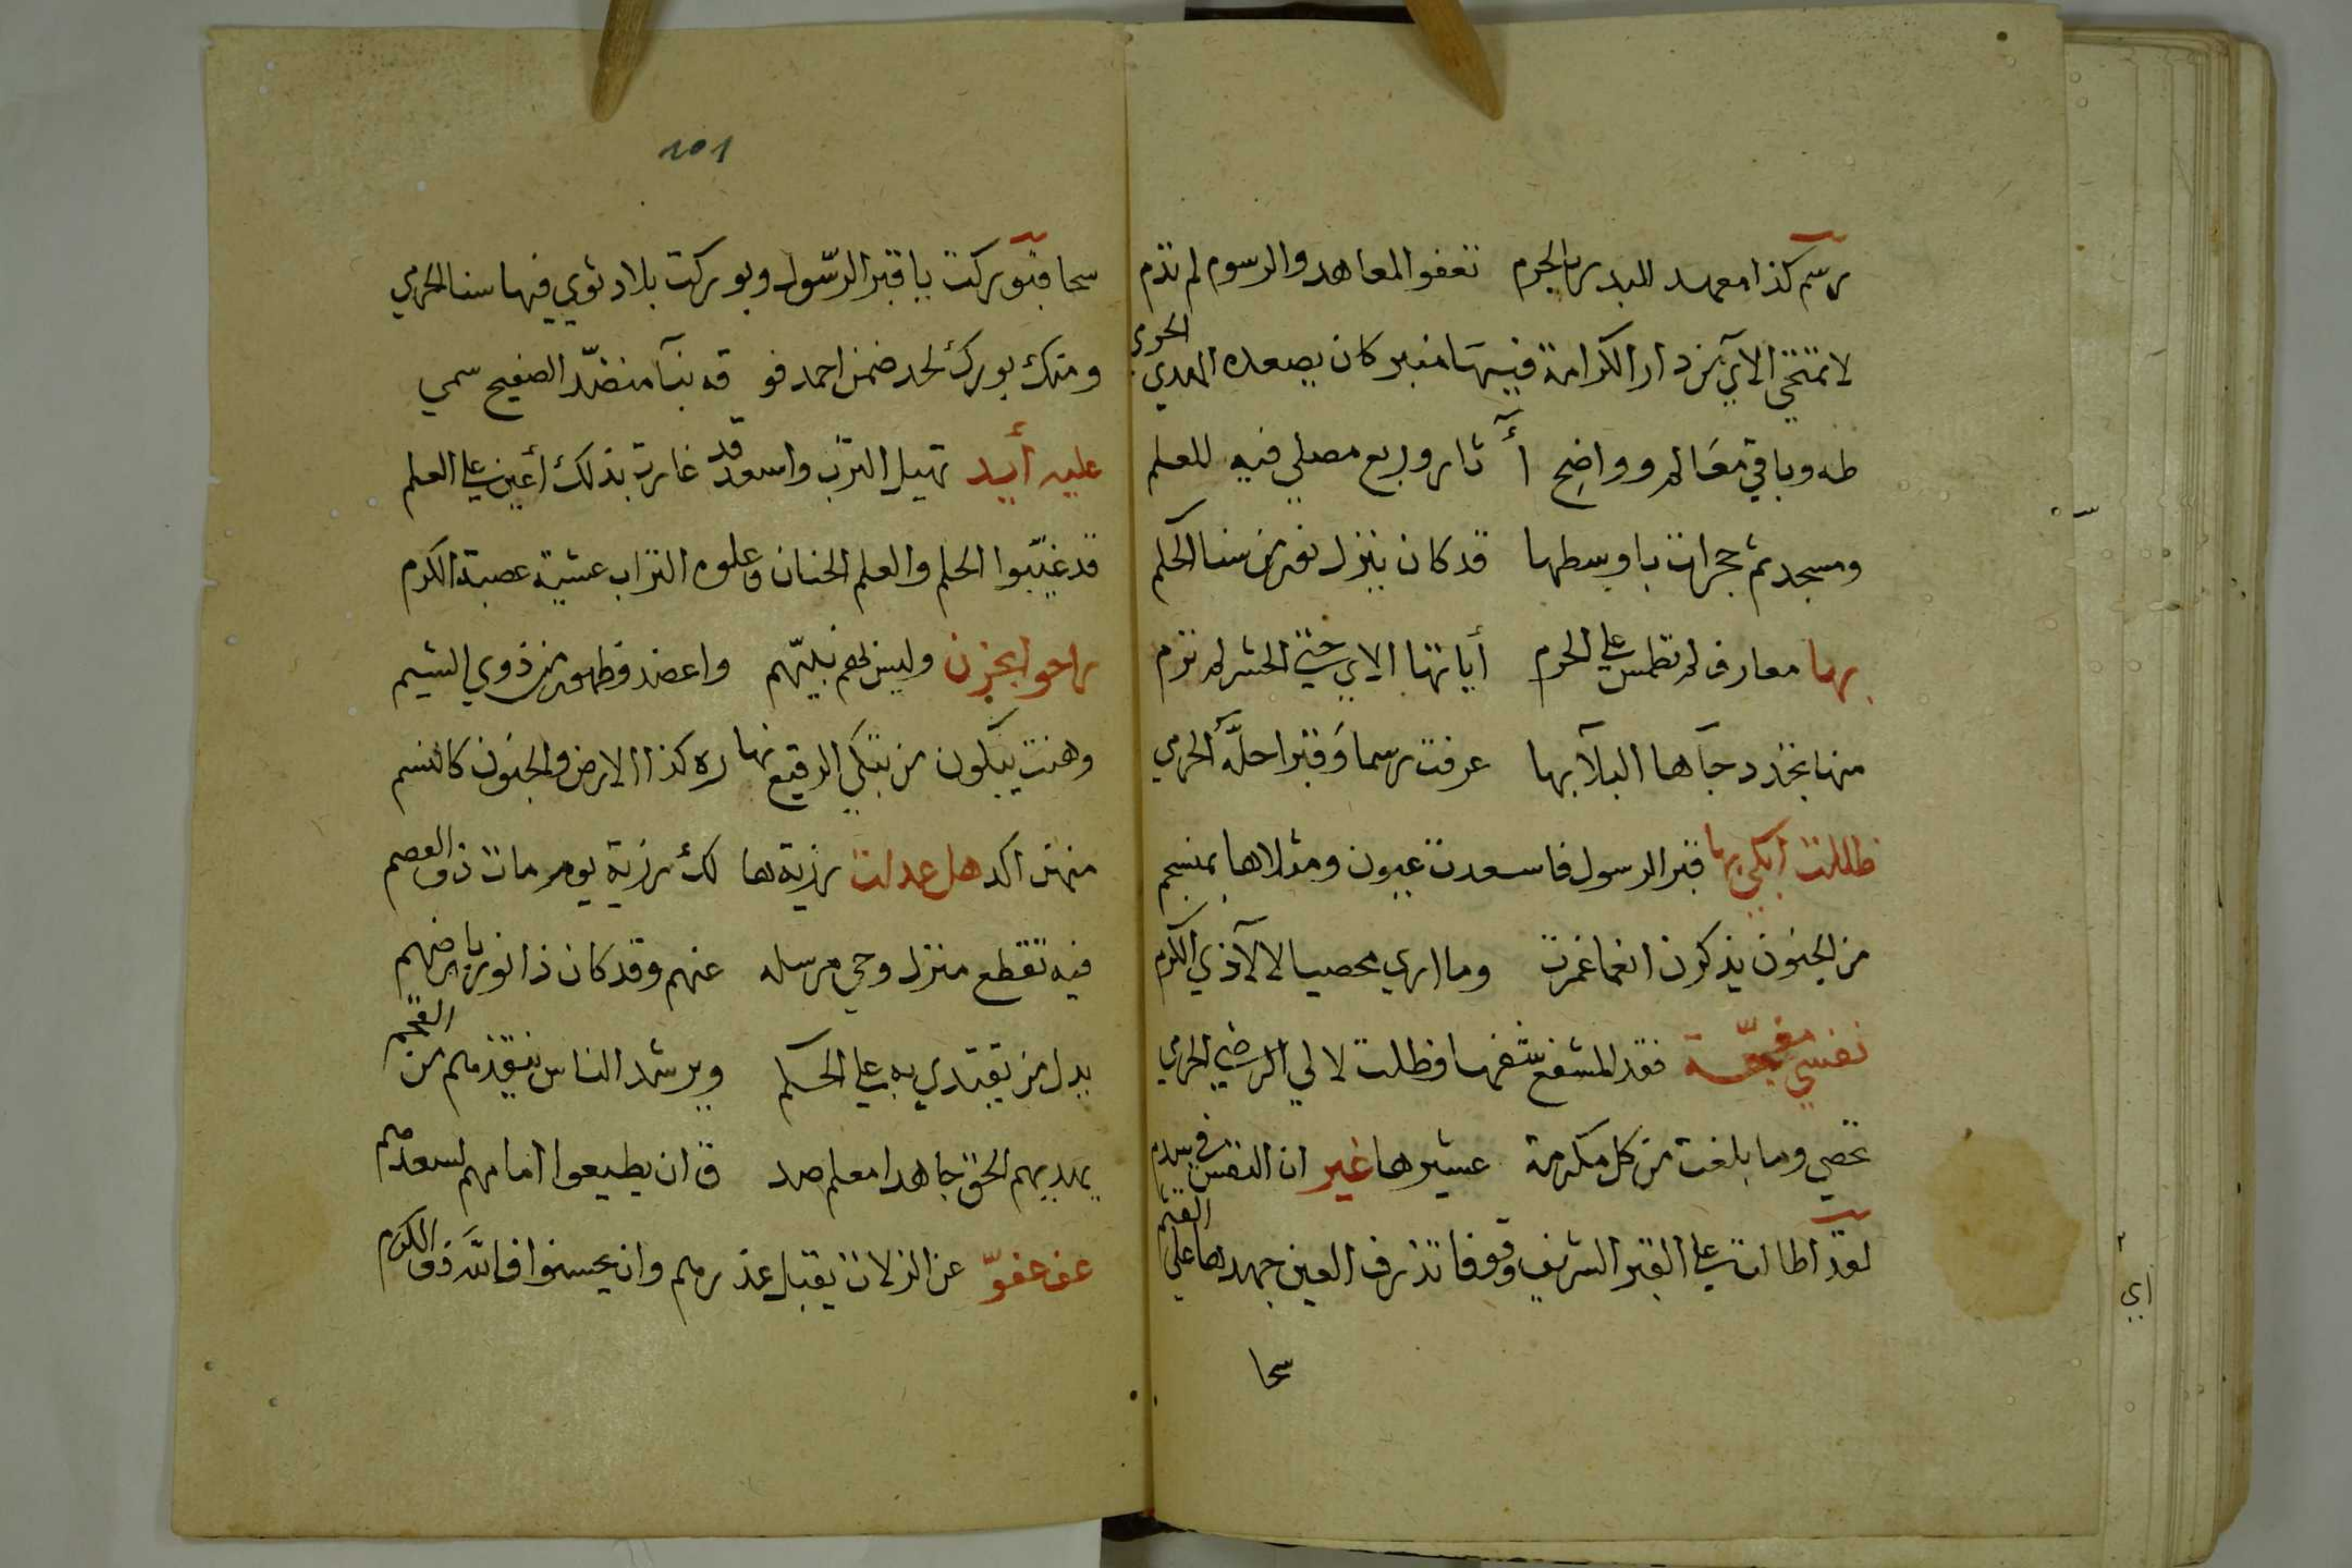 رسم كذا معهد للبدر بالحرم تعفو المعاهد والرسوم لم تذم
لا تمتحي الآي من دار الكرامة فيها منبر كان يصعده الهدي الحرمي
طه وباقي معالم وواضح آثار وربع مصلي فيه للعلم
ومسجد ثم حجرات باوسطها قد كان ينزل نور من سنا الحكم
بها معارف لم تطمس علي الحرم أياتها الاي حتي الحشر لم ترم
منها تجدد جآها البلآ بها عرفت رسما وقبرا حله الحرمي
ظللت ابكي بها قبر الرسول فاسعدت عيون ومثلاها بمنسجم
من الجفون يذكرن انعما غمرت وما اري محصيا لالآ ذي الكرم
نفسي مفجعة فقد المشفع شفها فظلت لالي الرضي الحرمي
تحصي وما بلغت من كل مكرمة عشيرها غير ان النفس في سدم
لقد اطالت علي القبر الشريف وقوفا تذرف العين جهدها علي القثم
سحا
101
سحا فبوركت يا قبر الرسول وبوركت بلاد ثوي فيها سنا الحرمي
ومنك بورك لحد ضمن احمد فو قه بنآ منضد الصفيح سمي
عليه أيد تهيل الترب واسعد قد غارت بذلك أعين علي العلم
قد غيبوا الحلم والعلم الحنان وعلوه التراب عشية عصبة الكرم
راحوا بحزن وليس لهم نبيهم واعضد وظهور من ذوي الشيم
وهنت يبكون من تبكي الرقيع نها ره كذا الارض والجفون كالنسم
منهن اكد هل عدلت رزية ها لك رزية يوم مات ذو العصم
فيه تقطع منزل وحي مرسله عنهم وقد كان ذا نور بارضهم
يدل من يقتدي به علي الحكم ويرشد الناس ينقذهم من القحم
يهديهم الحق جاهدا معلم صد ق ان يطيعوا امامهم لسعدهم
عف عفو عن الزلات يقبل عذرهم وان يحسنوا فالله ذو الكرم
أبي